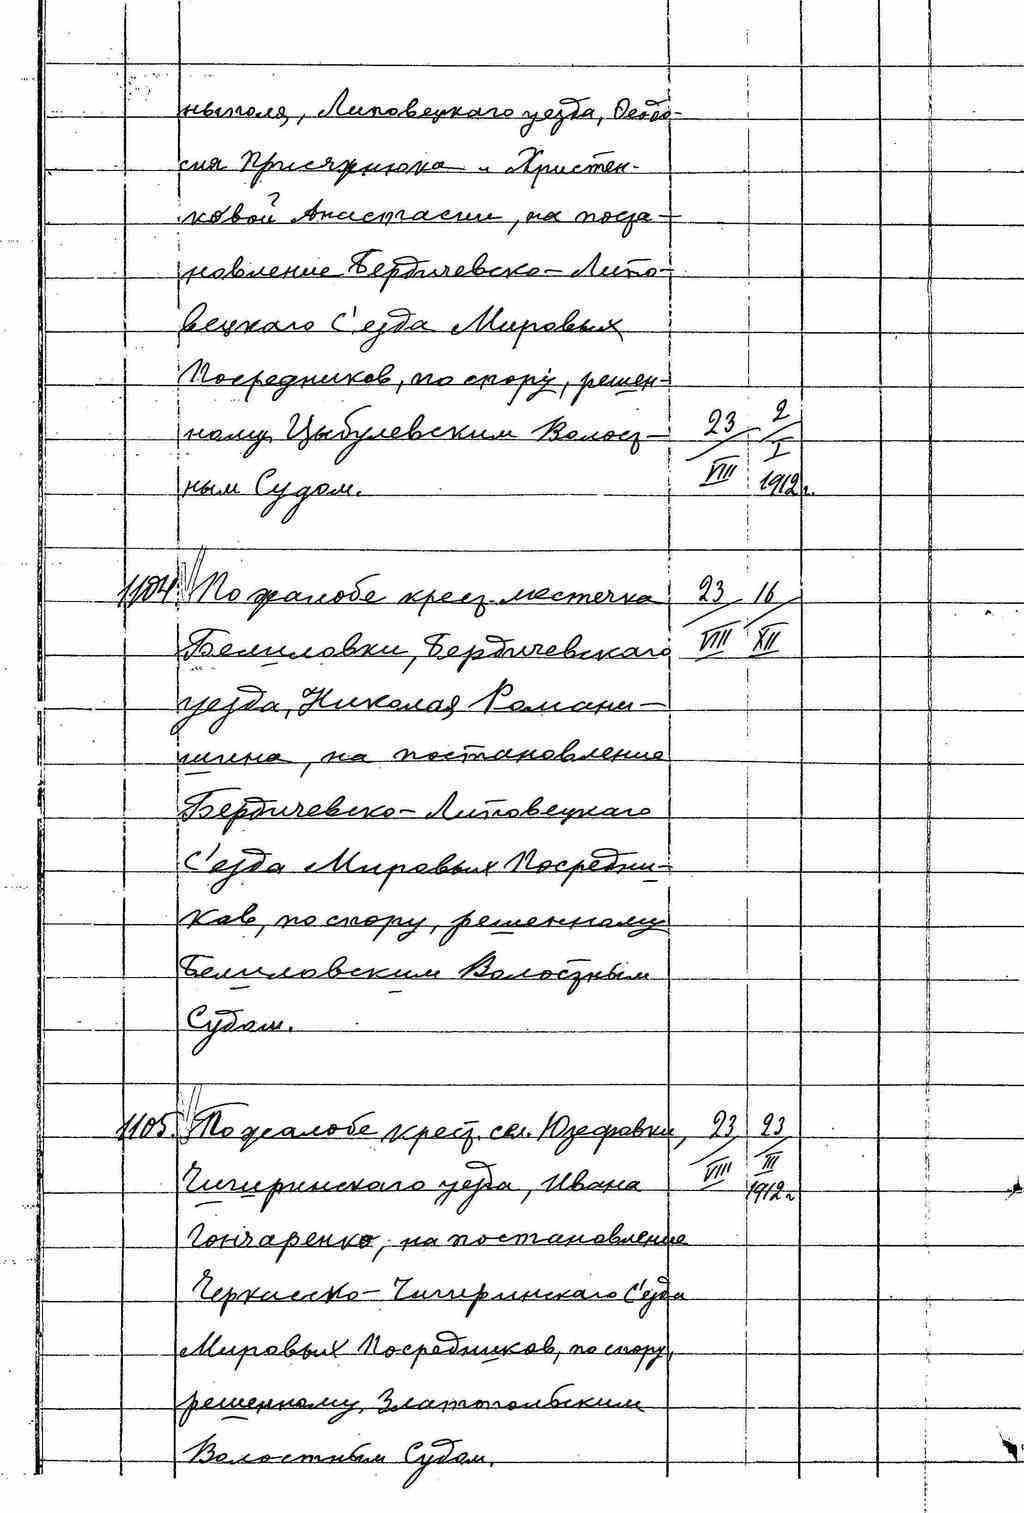 нытоля, Липовецкаго уезда, Феодо-
сия Присяжнюка и Христен-
ковой Анастасии, на поста-
новление Бердичевско-Липо-
вецкаго С'езда Мировых
Посредников, по спору, решен-
ному Цыбулевским Волост- 23 2
VIII I
ным Судом. 1912 г.
1104. По жалобе крест. местечка 23 16
Белиловки, Бердичевскаго VIII XII
уезда, Николая Романи-
шина, на постановление
Бердичевско-Липовецкаго
С'езда Мировых Посредни-
ков, по спору, решенному
Белиловским Волостным
Судом.
1105. По жалобе крест. сел. Юзефовки, 23 23
VIII III
Чигиринскаго уезда, Ивана 1912 г
Гончаренко, на постановление
Черкасско-Чигиринскаго С'езда
Мировых Посредников, по спору,
решенному Златопольским
Волостным Судом.